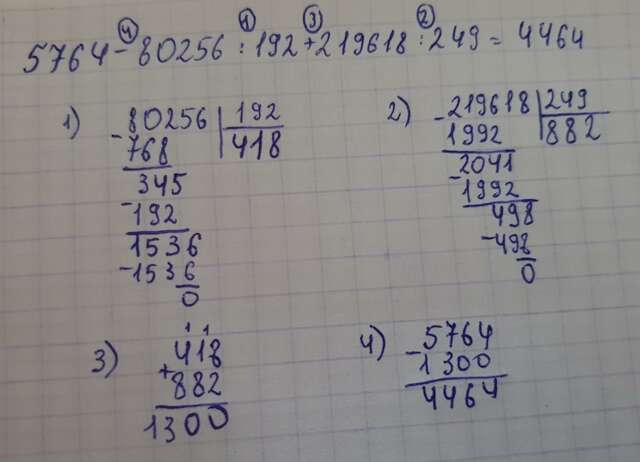 ④ ① ③ ②
5764-80256:192+219618:249=4464
1) -80256 | 192
768 418
345
-192
1536
-1536
0
2) -219618 | 249
1992 882
2041
-1992
498
-498
0
3) 11
418
+
882
1300
4) -5764
1300
4464